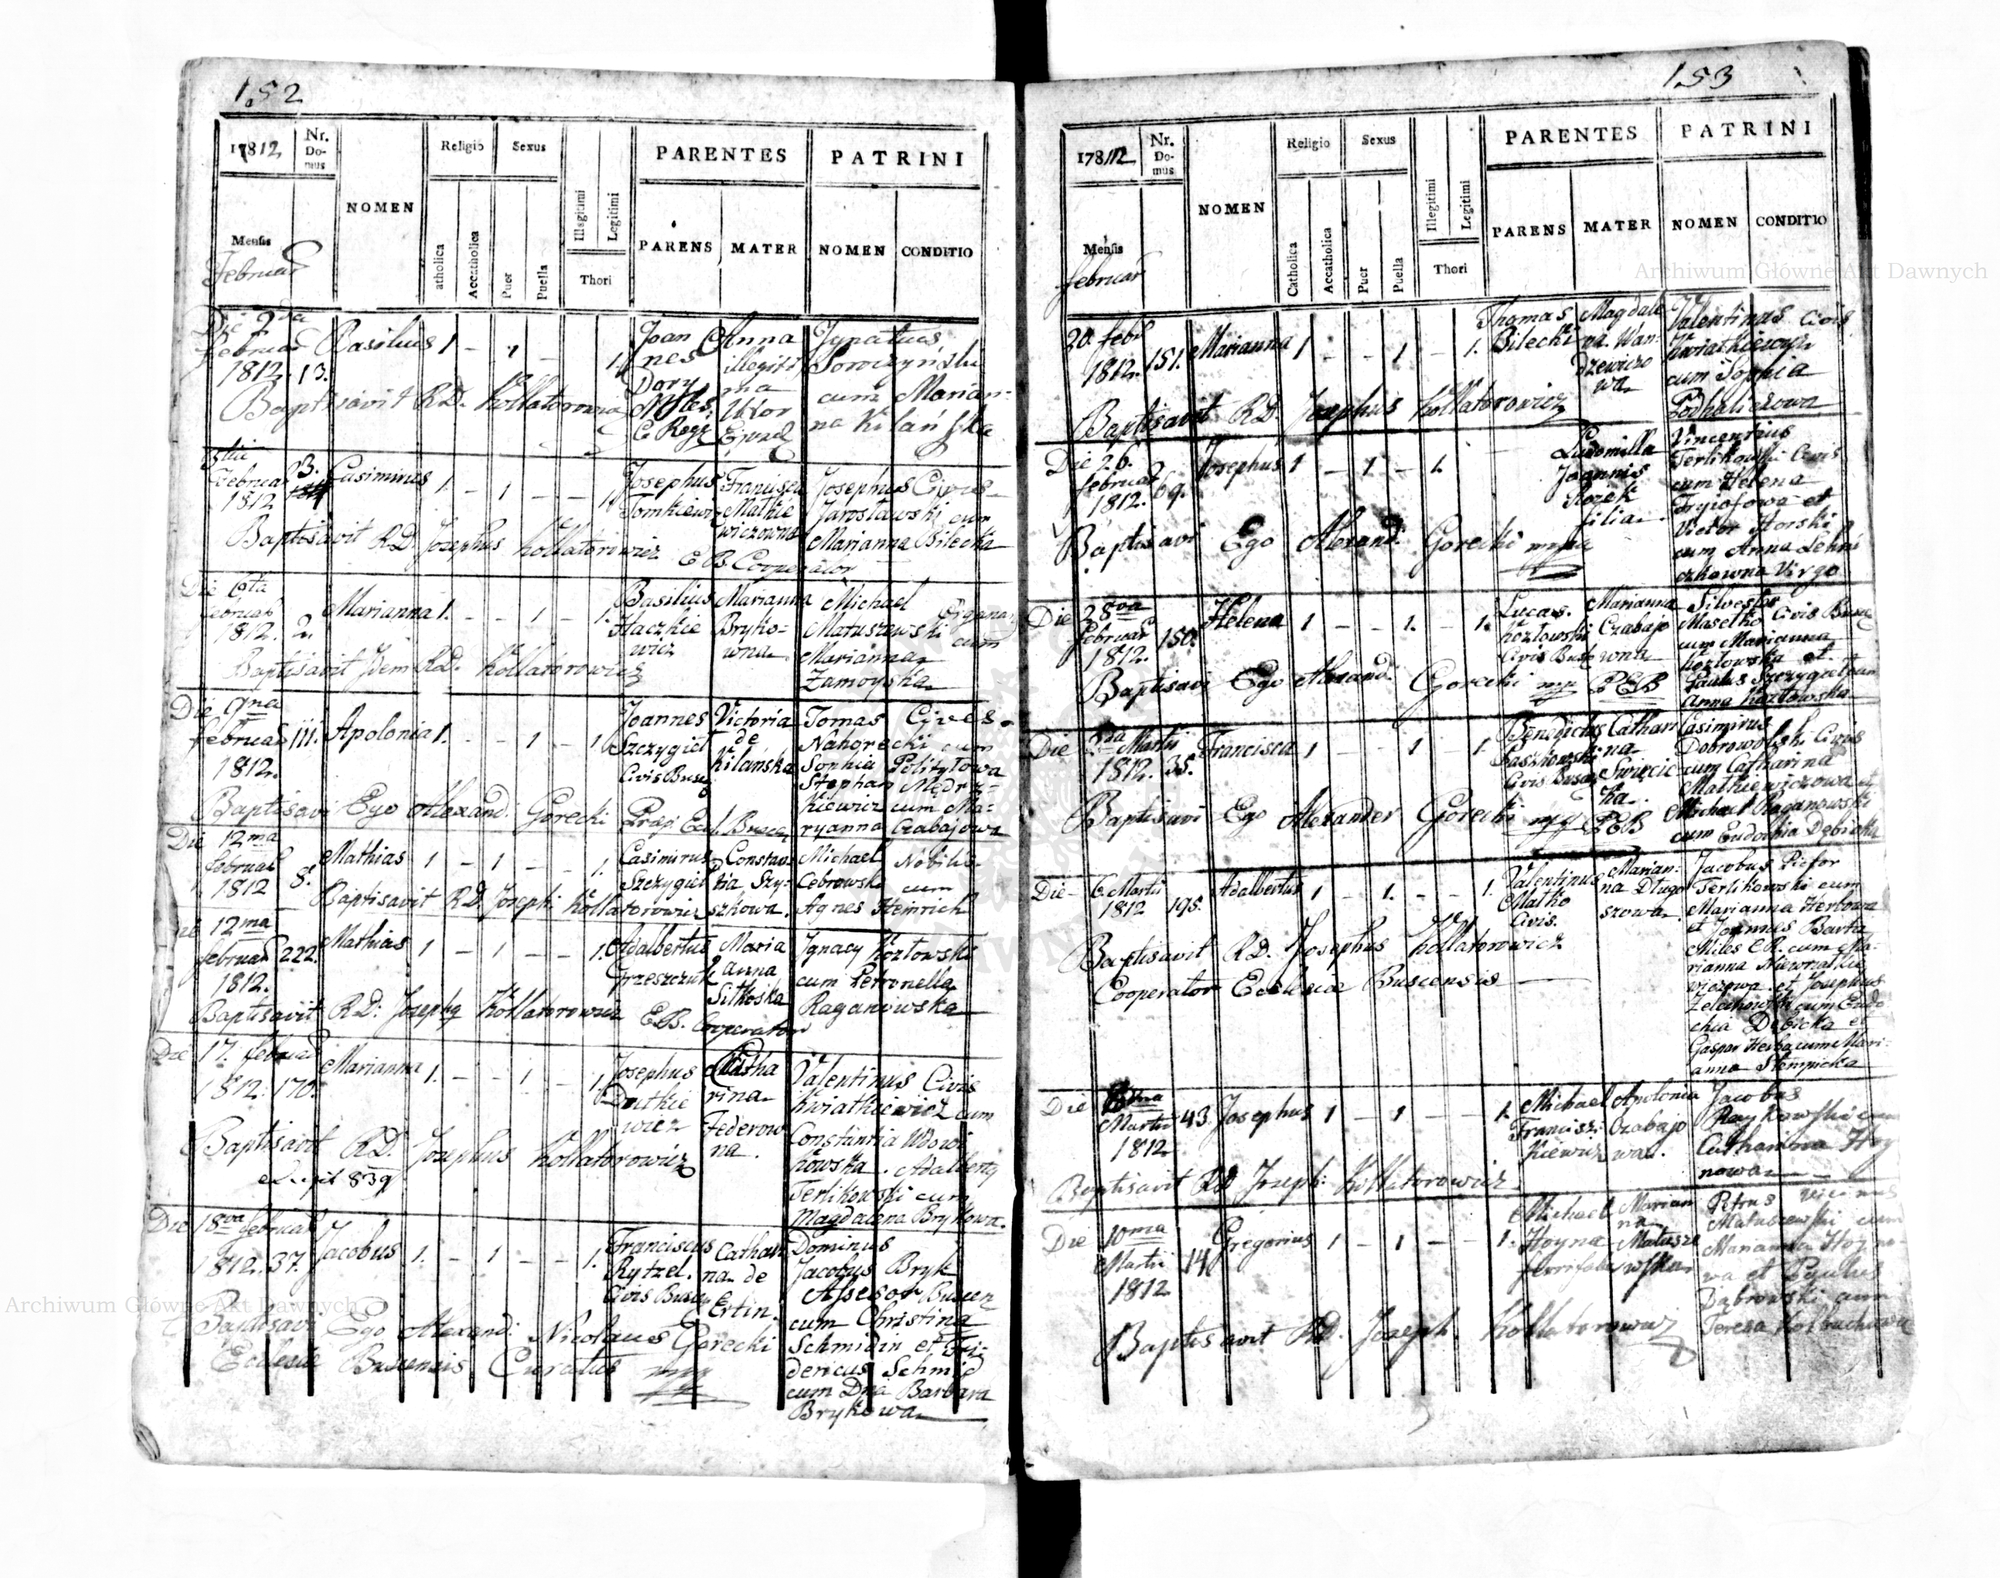 152
17812
Nr. Domus
NOMEN
Religio
Sexus
PARENTES
PATRINI
Mensis
Februar
Catholica
Accatholica
Puer
Puella
Illegitimi
Legitimi
Thori
PARENS
MATER
NOMEN
CONDITIO
Die 2da Februar 1812. 13.
Basilius 1 - 1 - - 1.
Joannes
Anna
Ignatius
cum Marian-
na Kilańska
Baptisavit RD. Kollatorowicz
Februar 23. 1812
Casimirus 1. - 1 - - 1.
Josephus Tomkiewicz
Francisca Mathiewiczowna
Josephus Civis
Jarosławski cum
Marianna Bilecka
Baptisavit RD. Josephus Kollatorowicz
EB. Cooperator
Die 6ta Februar 1812. 2.
Marianna 1. - - 1 - 1.
Basilius Haczkiewicz
Marianna Brykowna
Michael
Matuszewski cum
Marianna
Zamoyska
Baptisavit Idem RD. Kollatorowicz
Die 9na Februar 1812. 111.
Apolonia 1. - - 1 - 1
Joannes Szczygieł Civis Busc
Victoria de Kilańska
Tomas Cives
Nahorecki cum
Sophia Polityłowa
Stephan Mędrz-
kiewicz cum Ma-
ryanna Czabajowa
Baptisavi Ego Alexand: Gorecki
Die 12ma Februar 1812 8.
Mathias 1 - 1 - - 1.
Casimirus Szczygieł
Constantia Szyszkowa.
Michael Nobilis
Cebrowski cum
Agnes Heinrich
Baptisavit RD. Joseph: Kollatorowicz
Die 12ma Februar 1812. 222.
Mathias 1 - 1 - - 1.
Adalbertus Grzeszczuk
Maria anna Sitkoska
Ignacy Kozłowski
cum Petronella
Raganowska
Baptisavit RD: Joseph Kollatorowicz
EB. Cooperator
Die 17. Februar 1812. 170.
Marianna 1. - - 1 - 1.
Josephus Dutkiewicz
Catharina Federowna.
Valentinus Civis
Kwiatkiewicz cum
Constantia Wdowi
kowska. Adalbertus
Terlikowski cum
Magdalena Brykowa.
Baptisavit RD. Josephus Kollatorowicz
Die 18va Februar 1812. 37.
Jacobus 1. - 1 - - 1.
Franciscus Rytzel. Civis Buscen
Catharina de Ertin.
Dominus
Jacobus Bryk
Assesor Buscen
cum Christina
Schmidin et Fri-
dericus Schmid
cum Dna Barbara
Brykowa
Baptisavi Ego Alexand: Nicolaus Gorecki
Eclesiæ Buscensis Curatus mpp
153
178112
Nr. Domus
NOMEN
Religio
Sexus
PARENTES
PATRINI
Mensis
februar
Catholica
Accatholica
Puer
Puella
Illegitimi
Legitimi
Thori
PARENS
MATER
NOMEN
CONDITIO
20. febr 1812. 151.
Marianna 1 - - 1 - 1.
Thomas Bilecki
Magdalena Wandzewiczowa
Valentinus Civis
Kwiatkiewicz
cum Sophia
Podhaliczowa
Baptisavit RD. Josephus Kollatorowicz
Die 26. februar 1812. 69.
Josephus 1 - 1 - 1.
Ludomilla Joannis filia
Vincentius
Terlikowski Civis
cum Helena
et
Victor Horski
cum Anna
Virgo
Baptisavi Ego Alexand: Gorecki mpp
Die 28va februar 1812. 150.
Helena 1 - - 1. - 1.
Lucas. Kozłowski Civis Busc
Marianna Czabajowna
Silvester
Masełko Civis Busc
cum Marianna
Kozłowska et
Paulus Szczygieł cum
Anna Kozłowska
Baptisavi Ego Alexand: Gorecki mp PEB
Die 3da Martii 1812. 35.
Francisca 1 - - 1 - 1.
Benedictus Raszkowski Civis Busc
Catharina Swięcicka.
Casimirus
Dobrowolski. Civis
cum Catharina
Mathiewiczowa et
Michael Raganowski
cum Eudochia Dębicka
Baptisavi Ego Alexander Gorecki mpp PEB
Die 6. Martii 1812 195.
Adalbertus 1 - 1. - - 1.
Valentinus Matko Civis.
Marianna Długoszowa
Jacobus Pictor
Terlikowski cum
Marianna Herbowa
et Joannes Barta
Miles CR. cum Ma-
rianna
et Josephus
Zelechowski cum Eudo
chia Dębicka et
Gaspar Herba cum Mari-
anna Stempicka
Baptisavit RD. Josephus Kollatorowicz
Cooperator Ecclesiæ Buscensis
Die 8ma Martii 1812 43.
Josephus 1 - 1 - - 1.
Michael Franciszkiewicz
Apolonia Czabajowa.
Jacobus
Raykowski cum
Catharina Hoy
nowa
Baptisavit RD Joseph: Kollatorowicz
Die 10ma Martii 1812 14.
Gregorius 1 - 1 - - 1.
Michael Hoyna
Marianna Matuszewska
Petrus
Matuszewski cum
Marianna Hoyno
wa et Paulus
Dąbrowski cum
Teresa
Baptisavit RD. Joseph. Kollatorowicz
Archiwum Główne Akt Dawnych
Archiwum Główne Akt Dawnych